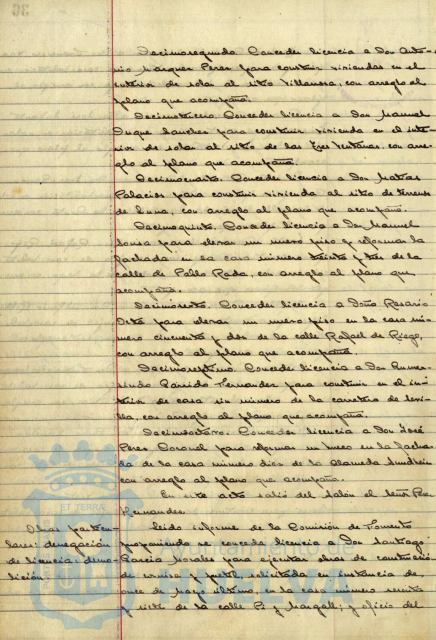 36
Decimosegundo. Conceder licencia a Don Anto-
nio Marquez Perez para construir viviendas en el
interior de solar al sitio Villanova, con arreglo al
plano que acompaña.
Decimotercero. Conceder licencia a Don Manuel
Duque Sanchez para construir vivienda en el inte-
rior de solar al sitio de las Tres Ventanas, con arre-
glo al plano que acompaña.
Decimocuarto. Conceder licencia a Don Matías
Palacios para construir vivienda al sitio de
de Luna, con arreglo al plano que acompaña.
Decimoquinto. Conceder licencia a Don Manuel
Sousa para elevar un nuevo piso y reformar la
fachada en la casa número treinta y tres de la
calle de Pablo Rada, con arreglo al plano que
acompaña.
Decimosexto. Conceder licencia a Doña Rosario
Ortá para elevar un nuevo piso en la casa nú-
mero cincuenta y dos de la calle Rafael de Riego,
con arreglo al plano que acompaña.
Decimoseptimo. Conceder licencia a Don Gumer-
sindo Garrido Fernandez para construir en el in-
terior de casa sin número de la carretera de Sevi-
lla, con arreglo al plano que acompaña.
Decimoctavo. Conceder licencia a Don José
Perez Coronel para reformar un hueco en la facha-
da de la casa número diez de la Alameda Sundheim
con arreglo al plano que acompaña.
En este acto salió del Salón el Señor
Fernandez.
Obras particu-
lares: denegación
de licencia: demo-
lición.
Leido informe de la Comisión de Fomento
proponiendo se conceda licencia a Don Santiago
Garcia Morales para ejecutar obras de construcción
de cornisa y pretil, solicitada en instancia de
once de Mayo último, en la casa número
y siete de la calle Pi y Margall; y oficio del
ET TERRA
Ayuntamiento de
HUELVA